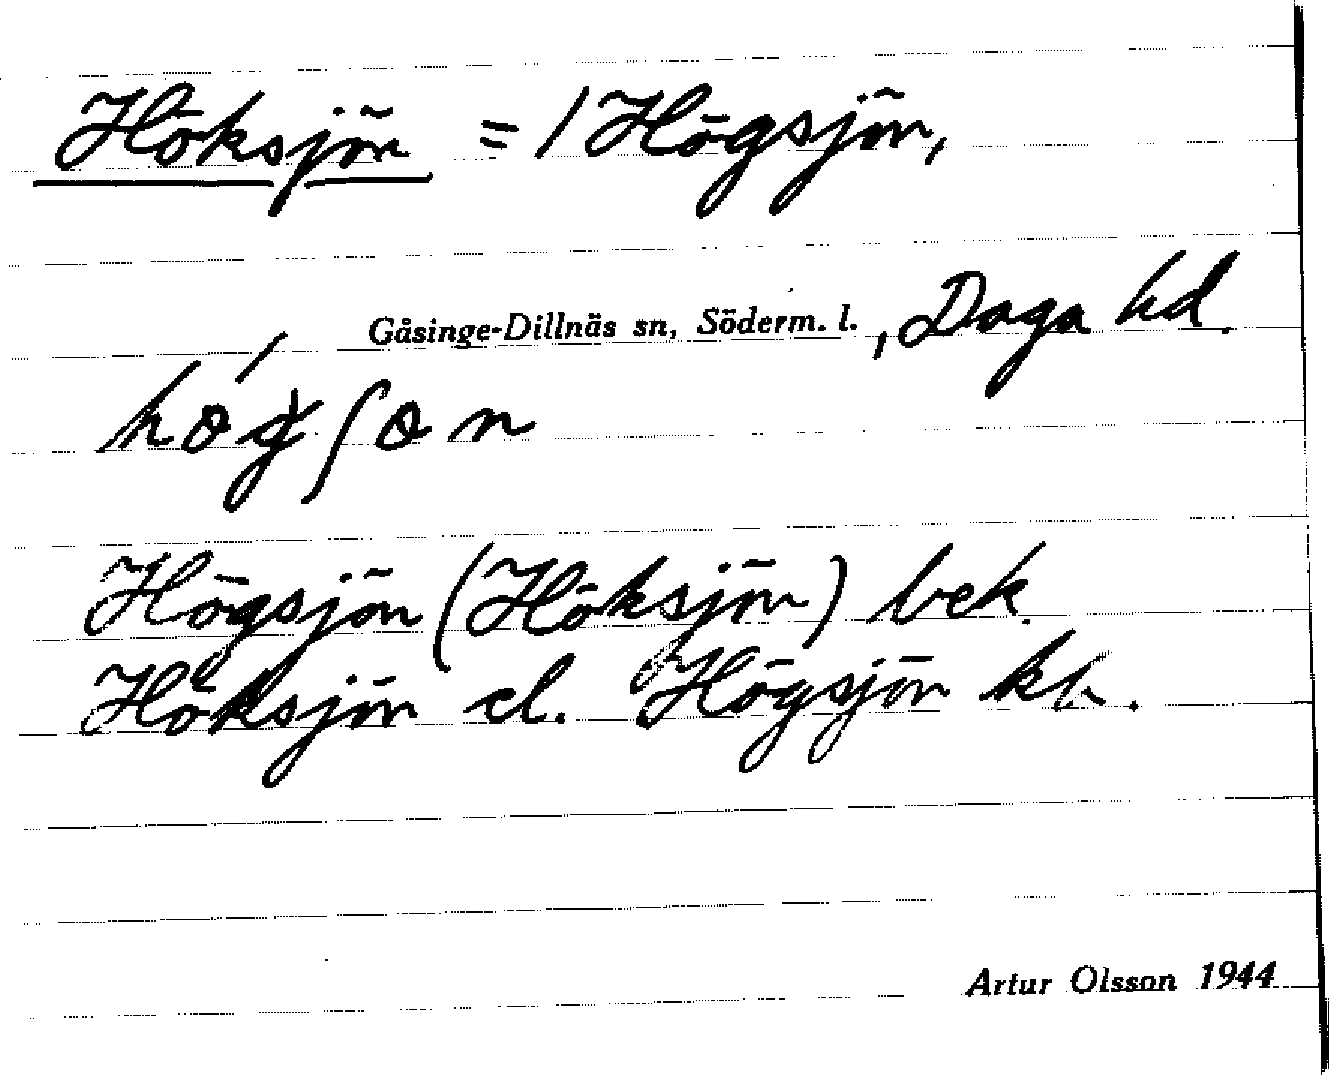 Höksjön = / Högsjön,
Gåsinge-Dillnäs sn, Söderm. l., Daga hd.
Högsjön (Höksjön) bek.
Höksjön el. Högsjön kk.
Artur Olsson 1944